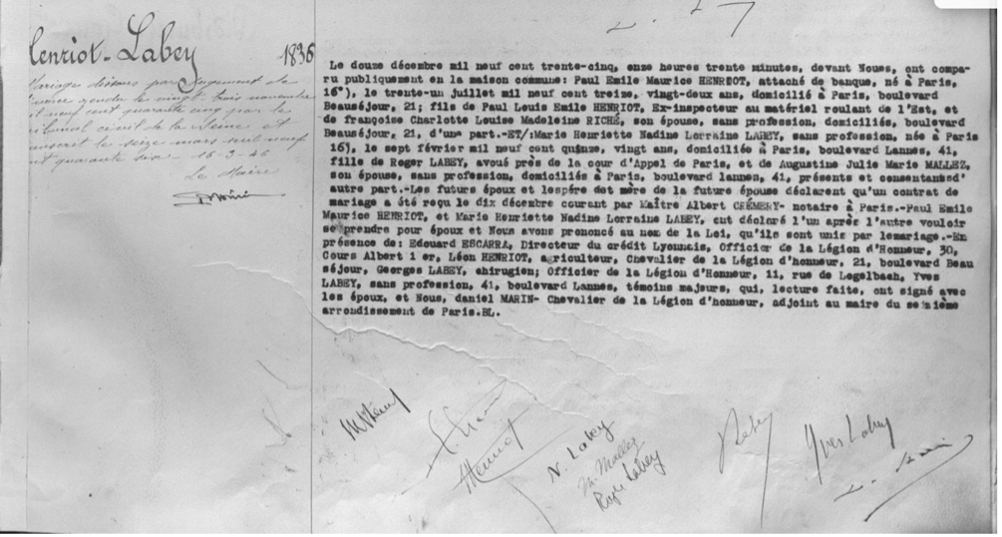 Henriot-Labey 1836
Mariage dissous par Jugement de
rendu le vingt-trois novembre
mil neuf cent quarante cinq par le
tribunal civil de la Seine et
transcrit le seize mars mil neuf
cent quarante six 16-3-46
Le Maire
Le douze décembre mil neuf cent trente-cinq, onze heures trente minutes, devant Nous, ont compa-
ru publiquement en la maison commune: Paul Emile Maurice HENRIOT, attaché de banque, né à Paris,
16°), le trente-un juillet mil neuf cent treize, vingt-deux ans, domicilié à Paris, boulevard
Beauséjour, 21; fils de Paul Louis Emile HENRIOT, Ex-inspecteur au matériel roulant de l'Est, et
de françoise Charlotte Louise Madeleine RICHÉ, son épouse, sans profession, domiciliés, boulevard
Beauséjour, 21, d'une part.-ET/:Marie Henriette Nadine Lorraine LABEY, sans profession, née à Paris
16), le sept février mil neuf cent quinze, vingt ans, domiciliée à Paris, boulevard Lannes, 41,
fille de Roger LABEY, avoué près de la cour d'Appel de Paris, et de Augustine Julie Marie MALLEZ,
son épouse, sans profession, domiciliés à Paris, boulevard lannes, 41, présents et consentansd'
autre part.-Les futurs époux et lespère det mère de la future épouse déclarent qu'un contrat de
mariage a été reçu le dix décembre courant par Maître Albert CRÉMERY- notaire à Paris.-Paul Emile
Maurice HENRIOT, et Marie Henriette Nadine Lorraine LABEY, ont déclaré l'un après l'autre vouloir
se prendre pour époux et Nous avons prononcé au nom de la Loi, qu'ils sont unis par lemariage.-En
présence de: Edouard ESCARRA, Directeur du crédit Lyonnais, Officier de la Légion d'Honneur, 30,
Cours Albert 1 er, Léon HENRIOT, agriculteur, Chevalier de la Légion d'honneur, 21, boulevard Beau
séjour, Georges LABEY, chirugien; Officier de la Légion d'Honneur, 11, rue de Logelbach, Yves
LABEY, sans profession, 41, boulevard Lannes, témoins majeurs, qui, lecture faite, ont signé avec
les époux, et Nous, daniel MARIN- Chevalier de la Légion d'honneur, adjoint au maire du seizième
arrondissement de Paris.BL.
Henriot
N. Labey
M. Mallez
Roger Labey
Labey
Yves Labey